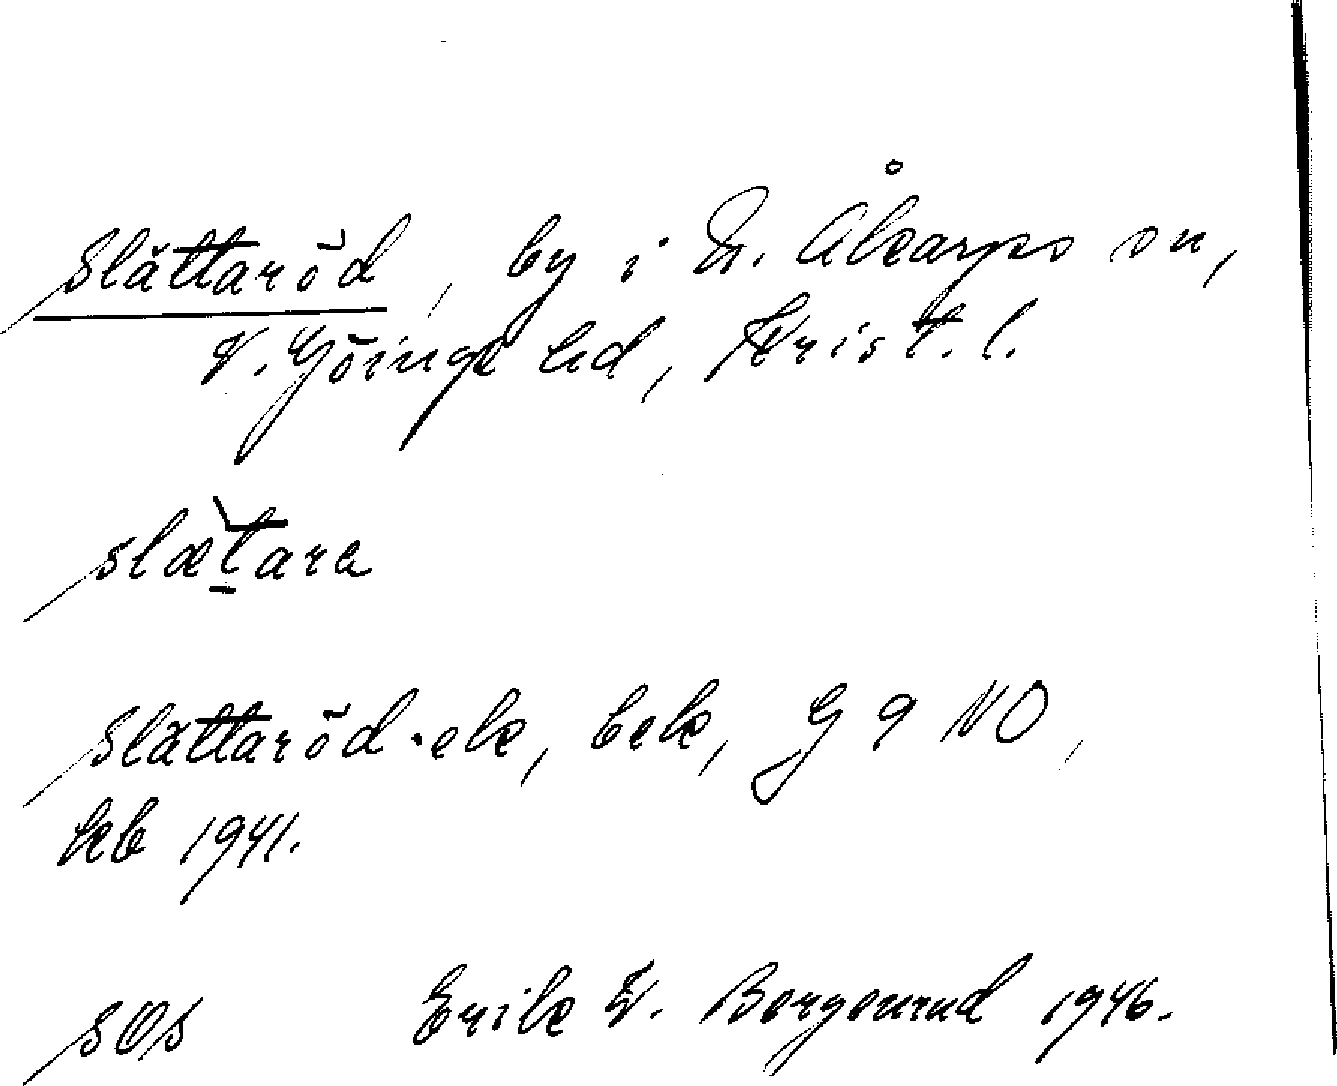 Slättaröd, by i N. Åkarps sn,
V. Göinge hd, Krist. l.
slætara
Slättaröd - ek, bek, G 9 NO,
hkb 1941.
SOS Erik W. Bergenrud 1946.